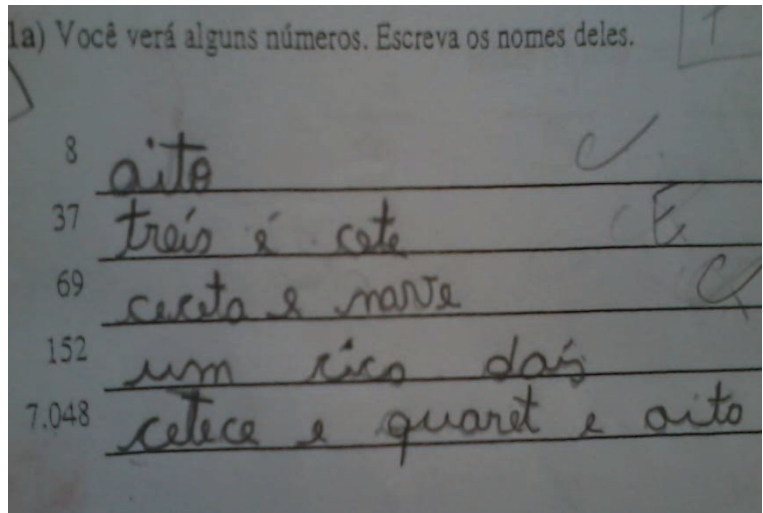 1a) Você verá alguns números. Escreva os nomes deles.
8 aito
37 treis é cete
69 ceceta e nave
152 um cico dois
7.048 cetece e quaret e oito